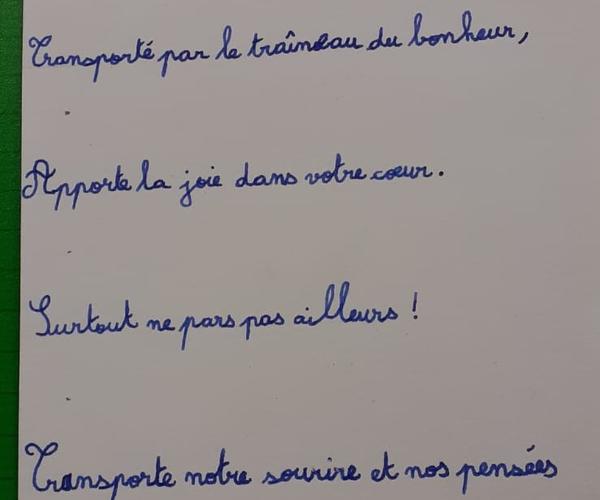 Transporté par le traîneau du bonheur,
Apporte la joie dans votre cœur.
Surtout ne pars pas ailleurs !
Transporte notre sourire et nos pensées